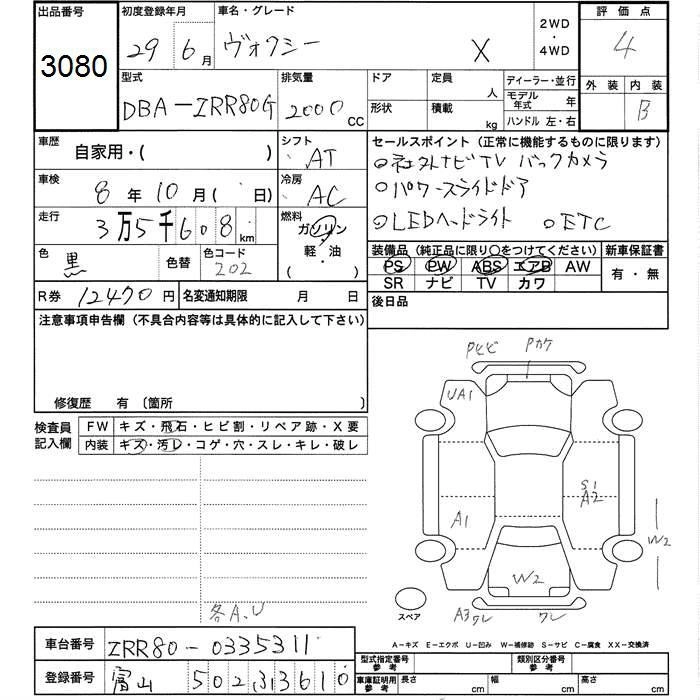 出品番号 初度登録年月 車名・グレード 2WD・4WD 評価点
3080 29 6月 ヴォクシー X 4
外装 内装
B
型式 排気量 ドア 定員 人 ディーラー・並行
DBA-ZRR80G 2000 CC 形状 積載 kg モデル年式 年
ハンドル 左・右
車歴 自家用・( ) シフト AT セールスポイント（正常に機能するものに限ります）
○社外ナビTV バックカメラ
車検 8年10月( 日) 冷房 AC ○パワースライドドア
走行 3万5千608km 燃料 ガソリン・軽・油・( ) ○LEDヘッドライト ○ETC
色 黒 色替 色コード 202 装備品（純正品に限り○をつけてください） 新車保証書
PS PW ABS エアB AW 有・無
SR ナビ TV カワ
R券 12470円 名変通知期限 月 日 後日品
注意事項申告欄（不具合内容等は具体的に記入して下さい）
修復歴 有 〔箇所 〕
検査員記入欄 FW キズ・飛石・ヒビ割・リペア跡・X要
内装 キズ・汚レ・コゲ・穴・スレ・キレ・破レ
Pカケ
UA1
S1
A2
A1
W2
W2
スペア A3ワレ ワレ
各A、U
A-キズ E-エクボ U-凹み W-補修跡 S-サビ C-腐食 XX-交換済
車台番号 ZRR80-0335311 型式指定番号 参考 類別区分番号 参考
登録番号 富山 502 3 3610 車庫証明用 参考 長さ cm 幅 cm 高さ cm